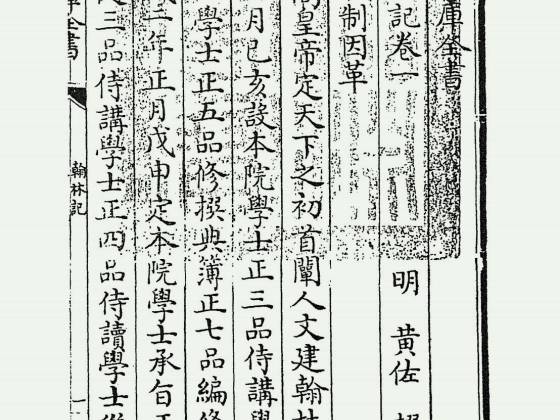 庫全書
記卷一
明 黃佐
制因革
皇帝定天下之初首闡人文建翰林
月己亥設本院學士正三品侍講學
學士正五品修撰典簿正七品編修
三年正月戊申定本院學士承旨正
三品侍講學士正四品侍讀學士從
翰林記
一
全書